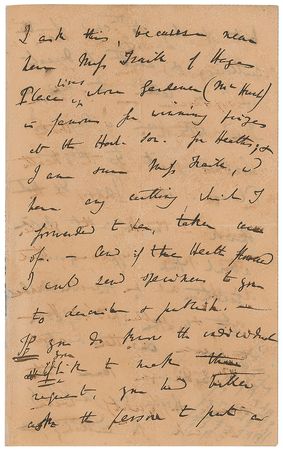 I ask this, because near
here Miss Traill of Hayes
Place lives, whose Gardener (Mr
is famous for winning prizes
at the Hort. Soc. for Heaths, &
I am sure Miss Traill, wd
have any cutting which I
forwarded to her, taken care
of. — And if the Heath flowered
I wd send specimens to you
to describe & publish. —
If you do know the individual
& if you like to make this
request, you had better
ask the person to put a